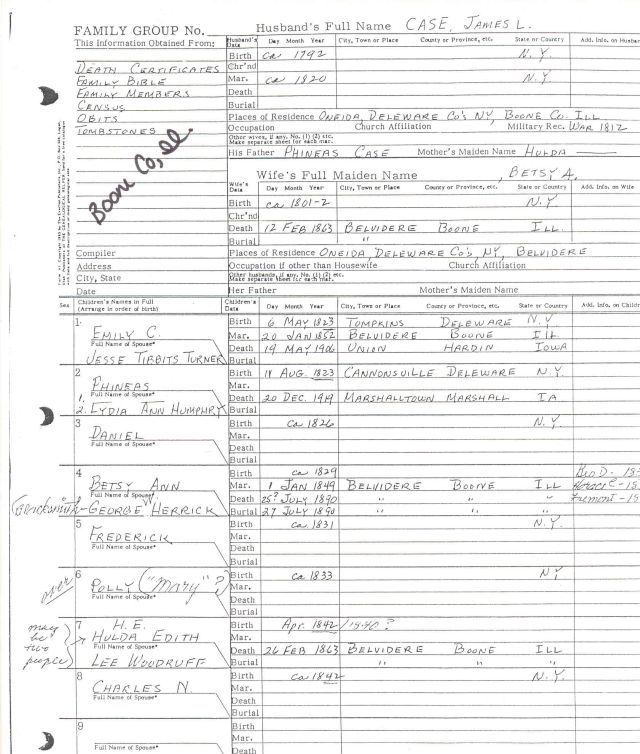 FAMILY GROUP No. Husband's Full Name CASE, JAMES L.
This Information Obtained From:
Husband's Data Day Month Year City, Town or Place County or Province, etc. State or Country Add. Info. on Husban
Birth ca 1792 N.Y.
Chr'nd
DEATH CERTIFICATES
Mar. ca 1820 N.Y.
FAMILY BIBLE
Death
FAMILY MEMBERS
Burial
CENSUS
Places of Residence ONEIDA, DELEWARE CO'S NY, BOONE CO. ILL
OBITS
Occupation Church Affiliation Military Rec. WAR 1812
TOMBSTONES
Other wives, if any, No. (1) (2) etc.
Make separate sheet for each mar.
His Father PHINEAS CASE Mother's Maiden Name HULDA
Boone Co, Il.
Wife's Full Maiden Name BETSY A.
Wife's Data Day Month Year City, Town or Place County or Province, etc. State or Country Add. Info. on Wife
Birth ca 1801-2 N.Y.
Chr'nd
Death 12 FEB 1863 BELVIDERE BOONE ILL.
Burial "
Compiler Places of Residence ONEIDA, DELEWARE CO'S, NY, BELVIDERE
Address Occupation if other than Housewife Church Affiliation
City, State Other husbands, if any, No. (1) (2) etc.
Make separate sheet for each mar.
Date Her Father Mother's Maiden Name
Sex Children's Names in Full
(Arrange in order of birth)
Children's Data Day Month Year City, Town or Place County or Province, etc. State or Country Add. Info. on Childre
1. Birth 6 MAY 1823 TOMPKINS DELEWARE N.Y
EMILY C. Mar. 20 JAN 1852 BELVIDERE BOONE ILL.
Full Name of Spouse* Death 19 MAY 1906 UNION HARDIN IOWA
JESSE TIBBITS TURNER Burial
2 Birth 18 AUG. 1823 CANNONSVILLE DELEWARE N.Y.
PHINEAS Mar.
1. Full Name of Spouse* Death 20 DEC. 1919 MARSHALLTOWN MARSHALL IA
2. LYDIA ANN HUMPHRY Burial
3 Birth ca 1826 N.Y.
DANIEL Mar.
Full Name of Spouse* Death
Burial
4 Birth ca 1829
BETSY ANN Mar. 1 JAN 1849 BELVIDERE BOONE ILL
Full Name of Spouse* Death 25? JULY 1890 " " "
GEORGE W HERRICK Burial 27 JULY 1890 " " "
5 Birth ca 1831 N.Y.
FREDERICK Mar.
Full Name of Spouse* Death
Burial
6 Birth ca 1833 NY
over POLLY ("Mary"? Mar.
Full Name of Spouse* Death
Burial
7 H.E. Birth Apr. 1842/1840?
may be two people HULDA EDITH Mar.
Full Name of Spouse* Death 26 FEB 1863 BELVIDERE BOONE ILL
LEE WOODRUFF Burial " " "
8 Birth ca 1842 N.Y.
CHARLES N. Mar.
Full Name of Spouse* Death
Burial
9 Birth
Mar.
Full Name of Spouse* Death